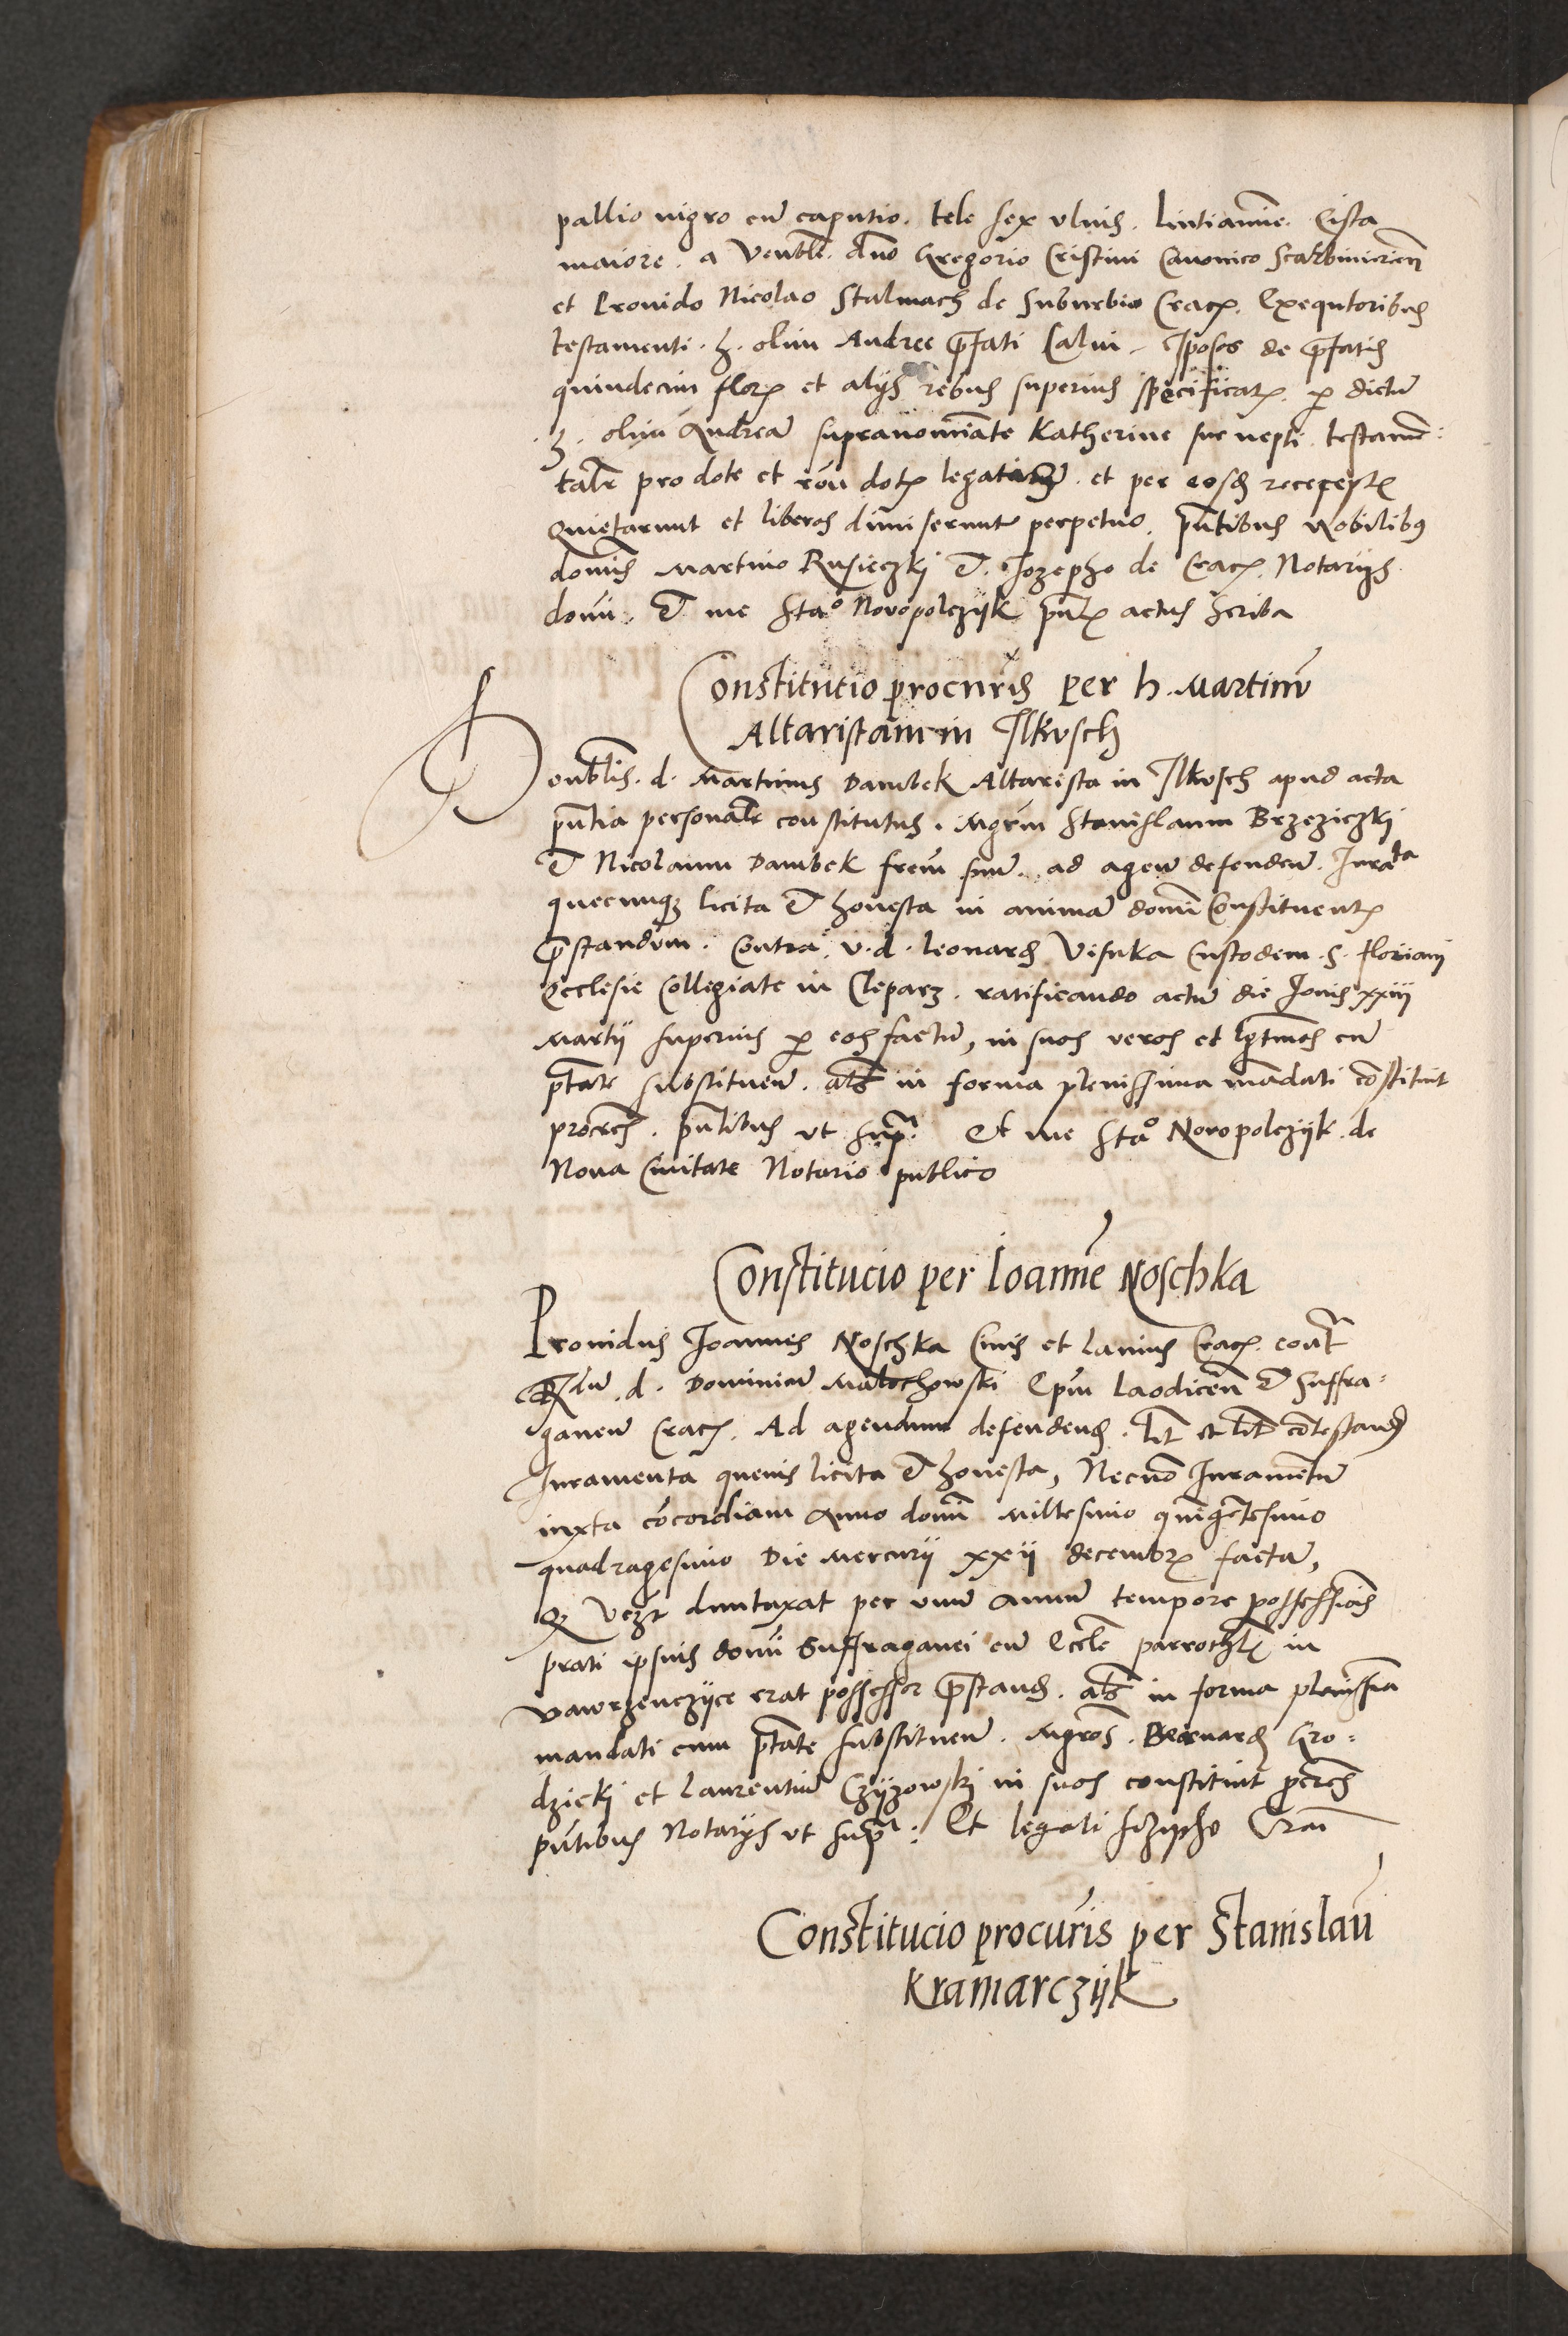 pallio nigro cum caputio. tele sex ulnis. lintiamine. Cista
maiore. a Venbli. dno Gregorio Cristini Canonico Scarbimirien
et Provido Nicolao Stalmach de Suburbio Crac. Exequtoribus
testamenti. h. olim Andree pfati Calvi. Ipsos de pfatis
quindecim flor et alijs rebus superius specificat. p dictu
.h. olim Andrea supranominate Katherine sue nepti testame:
talr pro dote et dot legat et per eosd recept
Quietarunt et liberos dimiserunt perpetuo. pntibus Nobilibus
domis Martino Rusieczkj & Jozepho de Crac. Notarijs
domi. & me Stao Novopolczijk pnt actus scriba
Constitutio procuris per h. Martinu
Altaristam in Ilkusch
Venblis. d. Martinus Dambek Altarista in Ilkusch apud acta
pntia personalr constitutus. Mgrm Stanislaum Brzeziczki
& Nicolaum Dambek frem suu. ad agen defenden. Jurata
quecunqz licita & honesta in anima domi Constituent
pstandum. Contra. v. d. Leonard Visuka Custodem. S. floriani
Ecclesie Collegiate in Cleparz. ratificando actu die Jovis xxiii
Martij superius p eos factu, in suos veros et lgtmos cu
ptate substituen. als in forma plenissima madati constituit
procres. pntibus ut sup. Et me Stao Novopolczijk. de
Nova Civitate Notario publico
Constitucio per Joanne Noschka
Providus Joannes Noschka Civis et Lanius Crac. cont
Rdu. d. Dominicu Malochowski Epm Laodicen & Suffra-
ganeu Crac. Ad agendum defendend. lit et lit contestand
Juramenta quevis licita & honesta, Necno Juramentu
iuxta concordiam Anno domi Millesimo quingetesimo
quadragesimo Die Mercurij xxii decembr facta,
Q duntaxat per unu annu tempore possessiois
prati ipsius domi Suffraganei cu Eccle parrochl in
Vawrzenczijce erat possessor pstand. als in forma plenissia
mandati cum ptate substituen. Mgros. Bernard Gro-
dzicki et Laurentiu Czijzowski in suos constituit pcres
pntibus Notarijs ut sup: Et
Constitucio procuris per Stanislau
Kramarczijk